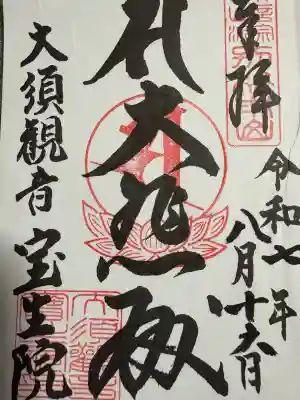 奉拝
令和七年
八月十六日
大悲殿
大須観音 宝生院